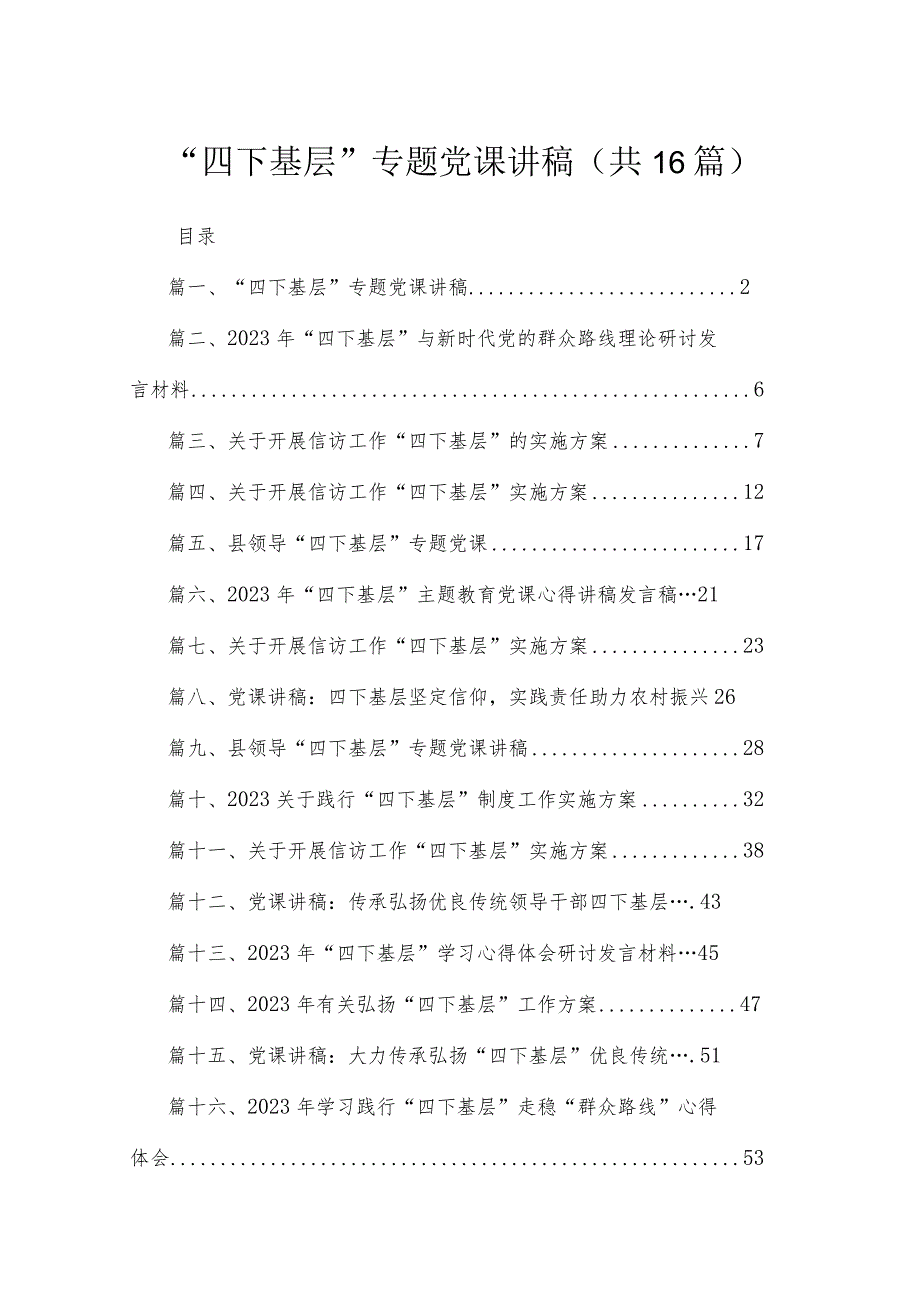 “四下基层”专题党课讲稿（共16篇）
目录
篇一、“四下基层”专题党课讲稿...........................2
篇二、2023年“四下基层”与新时代党的群众路线理论研讨发
言材料........................................................6
篇三、关于开展信访工作“四下基层”的实施方案..............7
篇四、关于开展信访工作“四下基层”实施方案...............12
篇五、县领导“四下基层”专题党课.........................17
篇六、2023年“四下基层”主题教育党课心得讲稿发言稿…21
篇七、关于开展信访工作“四下基层”实施方案...............23
篇八、党课讲稿：四下基层坚定信仰，实践责任助力农村振兴26
篇九、县领导“四下基层”专题党课讲稿.....................28
篇十、2023关于践行“四下基层”制度工作实施方案..........32
篇十一、关于开展信访工作“四下基层”实施方案.............38
篇十二、党课讲稿：传承弘扬优良传统领导干部四下基层….43
篇十三、2023年“四下基层”学习心得体会研讨发言材料…45
篇十四、2023年有关弘扬“四下基层”工作方案..............47
篇十五、党课讲稿：大力传承弘扬“四下基层”优良传统….51
篇十六、2023年学习践行“四下基层”走稳“群众路线”心得
体会.........................................................53